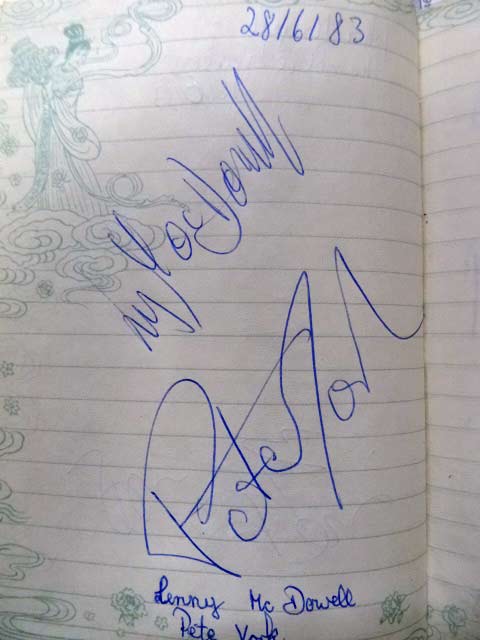 28/6/83
ny MacDowell
Pete York
Lenny Mc Dowell
Pete York